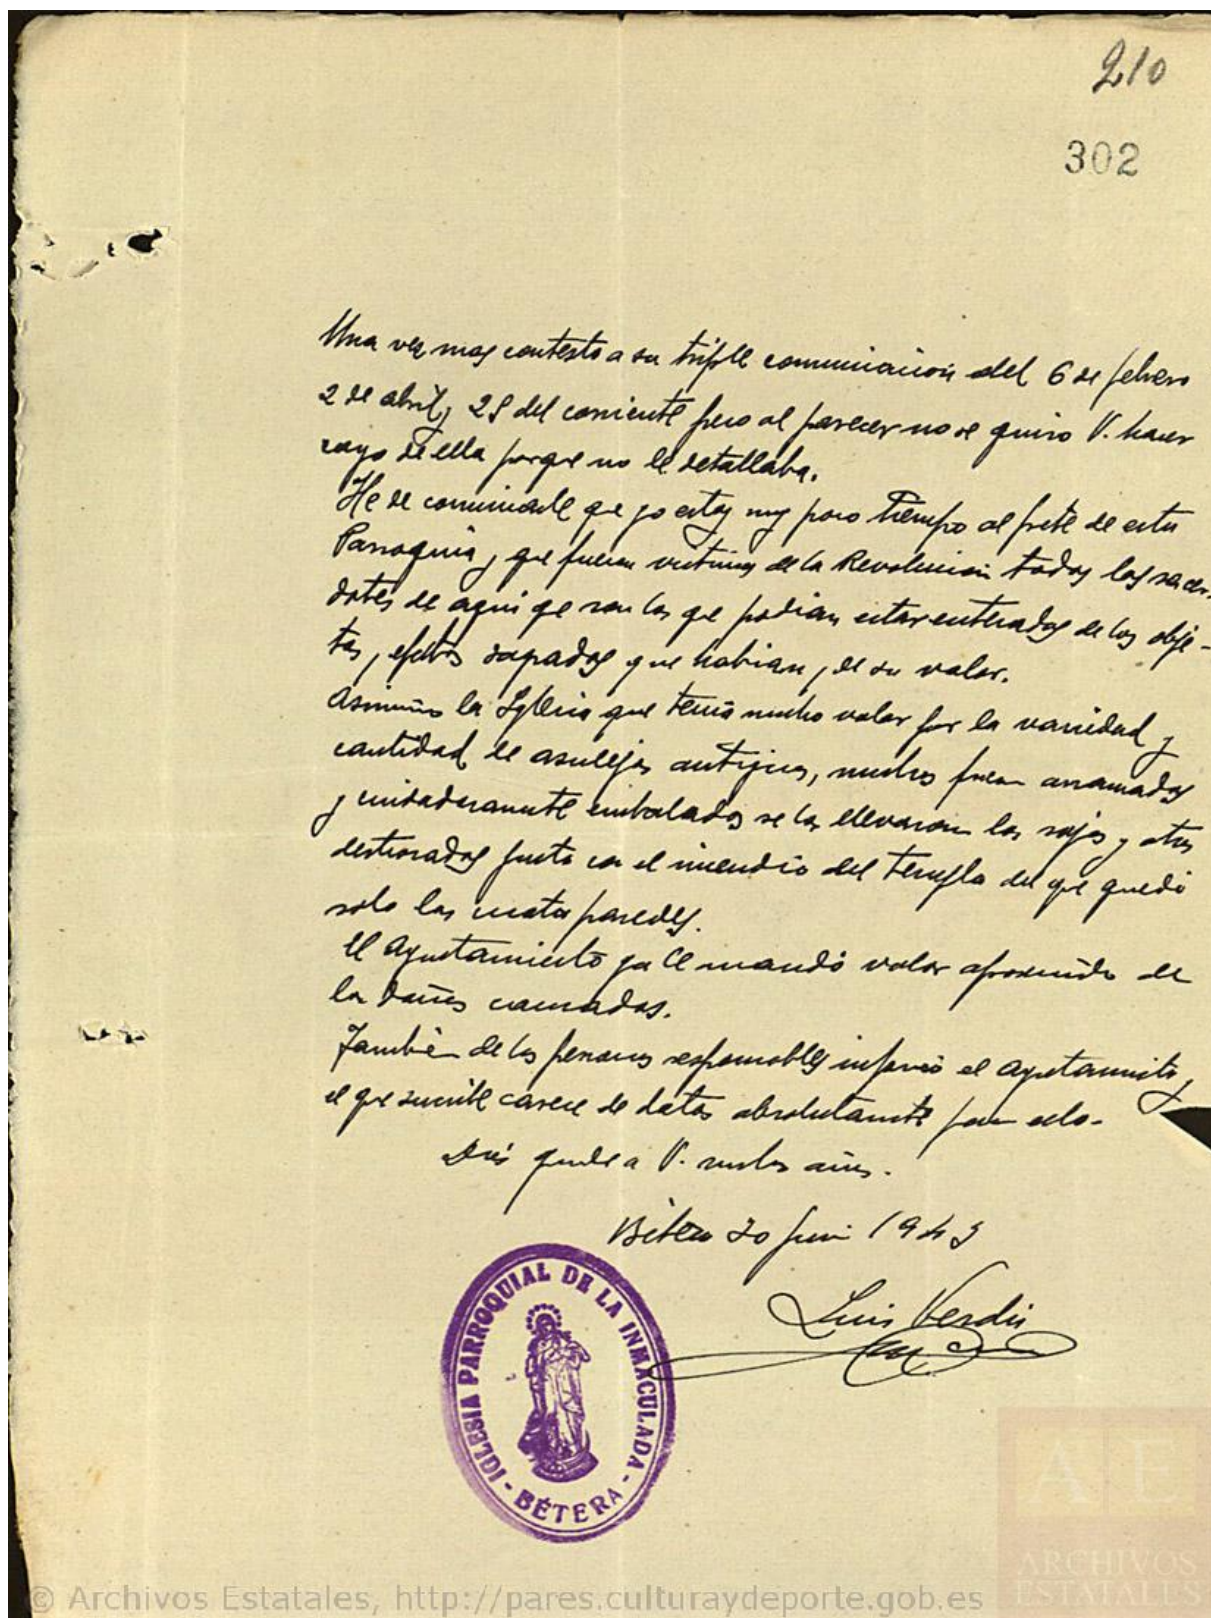 210
302
Una vez mas contesto a su triple comunicacion del 6 de febrero
2 de abril y 28 del corriente pero al parecer no se quiso V. hacer
cargo de ella porque no le detallaba.
He de comunicarle que yo estoy muy poco tiempo al frete de esta
Parroquia y que fueron victimas de la Revolucion todos los sacer-
dotes de aqui que son los que podian estar enterados de los obje-
tos y efectos sagrados que habian y de su valor.
Asimismo la Iglesia que tenia mucho valor por la variedad y
cantidad de asulejos antiguos, muchos fueron arrancados
y cuidadosamente embalados se los llevaron los rojos y otros
destrozados junto con el incendio del templo del que quedó
solo las cuatro paredes.
El Ayuntamiento ya le mandó valor aproximado de
los daños causados.
También de las personas responsables informó el ayuntamiento,
el que suscribe carece de datos absolutamente para ello.
Dios guarde a V. muchos años.
Bétera 30 Junio 1943
Luis Verdú
IGLESIA PARROQUIAL DE LA INMACULADA - BÉTERA -
A E
ARCHIVOS
ESTATALES
© Archivos Estatales, http://pares.culturaydeporte.gob.es